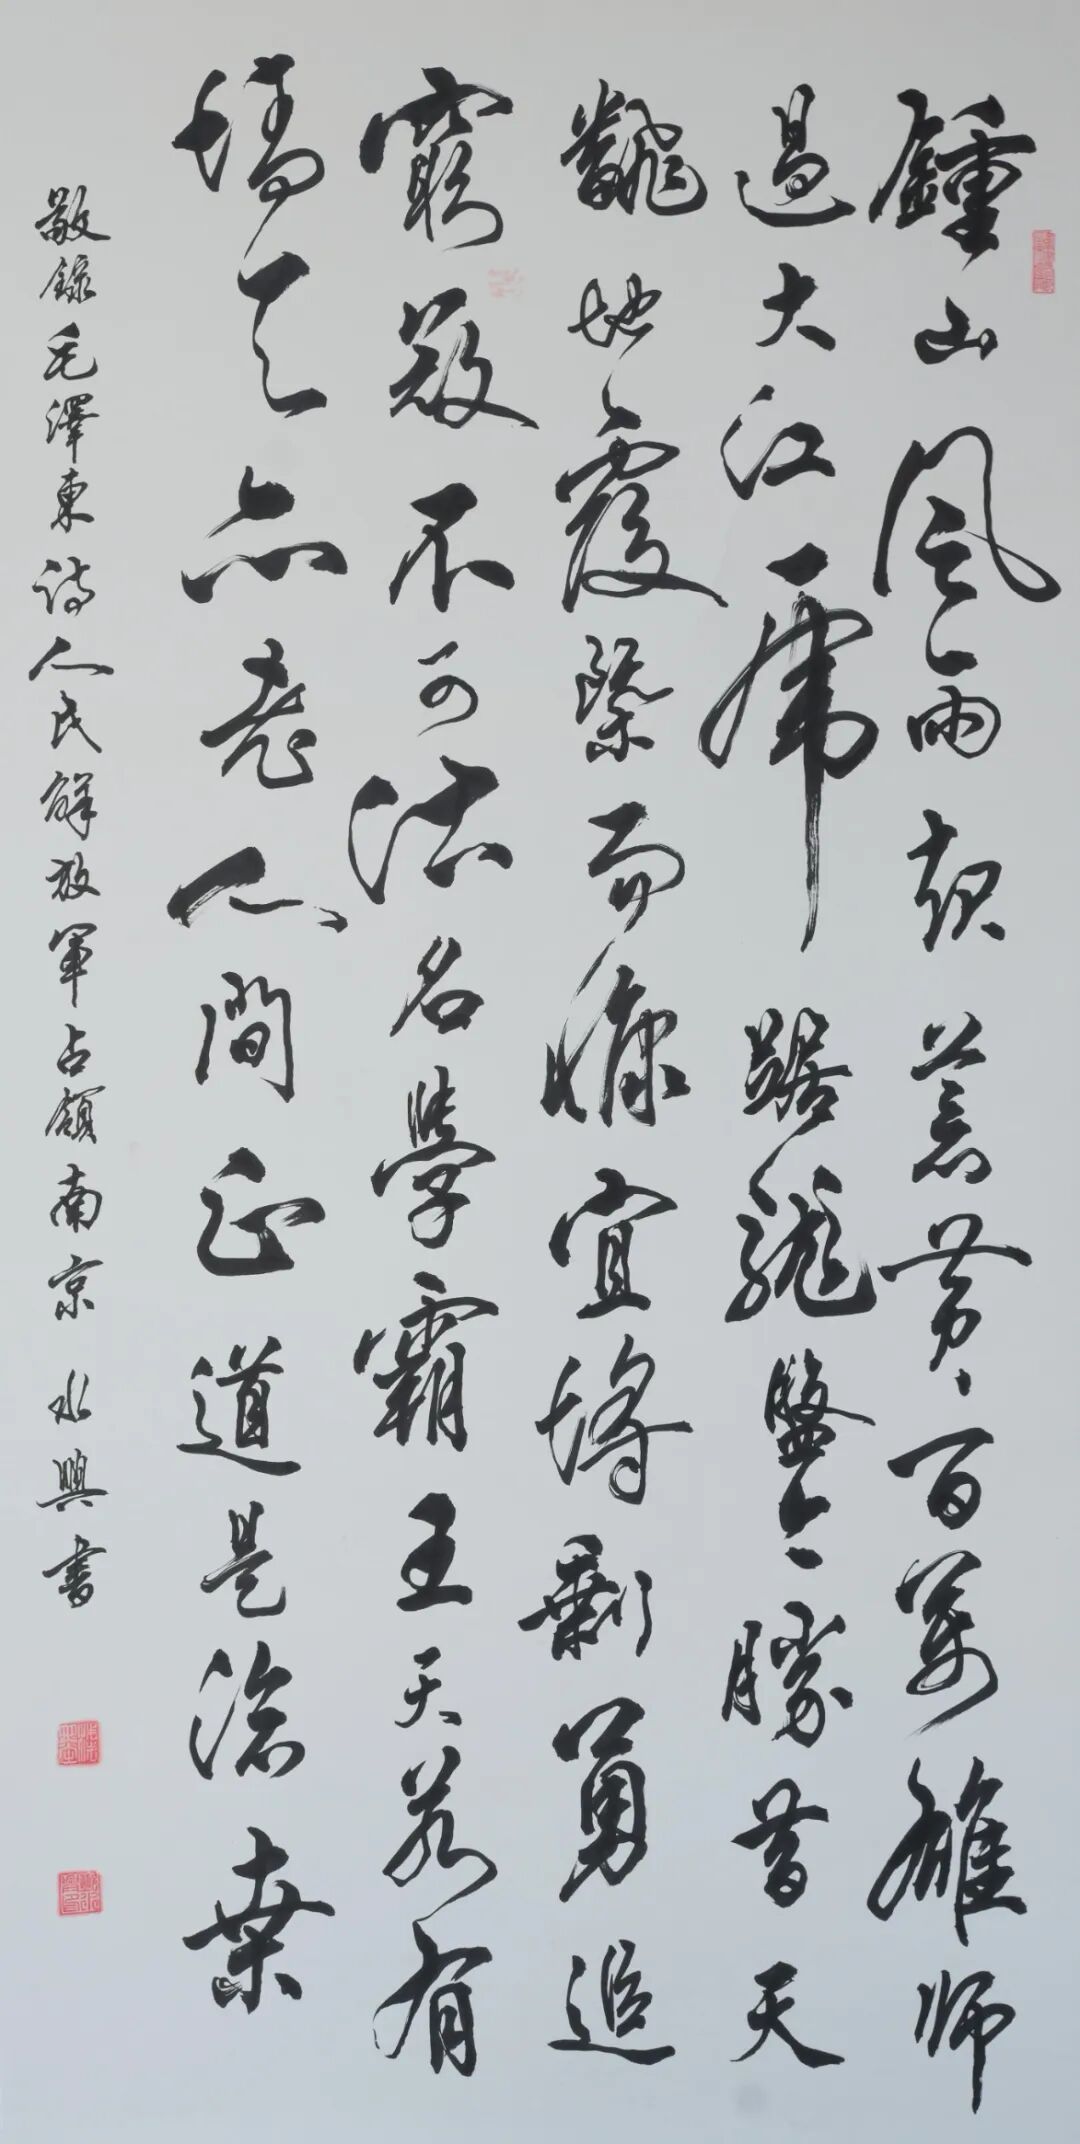 鍾山風雨起蒼黄百萬雄師
過大江虎踞龍盤今勝昔天
飜地覆慨而慷宜將剩勇追
窮寇不可沽名學霸王天若有
情天亦老人間正道是滄桑
敬錄毛澤東詩人民解放軍占領南京 水興書